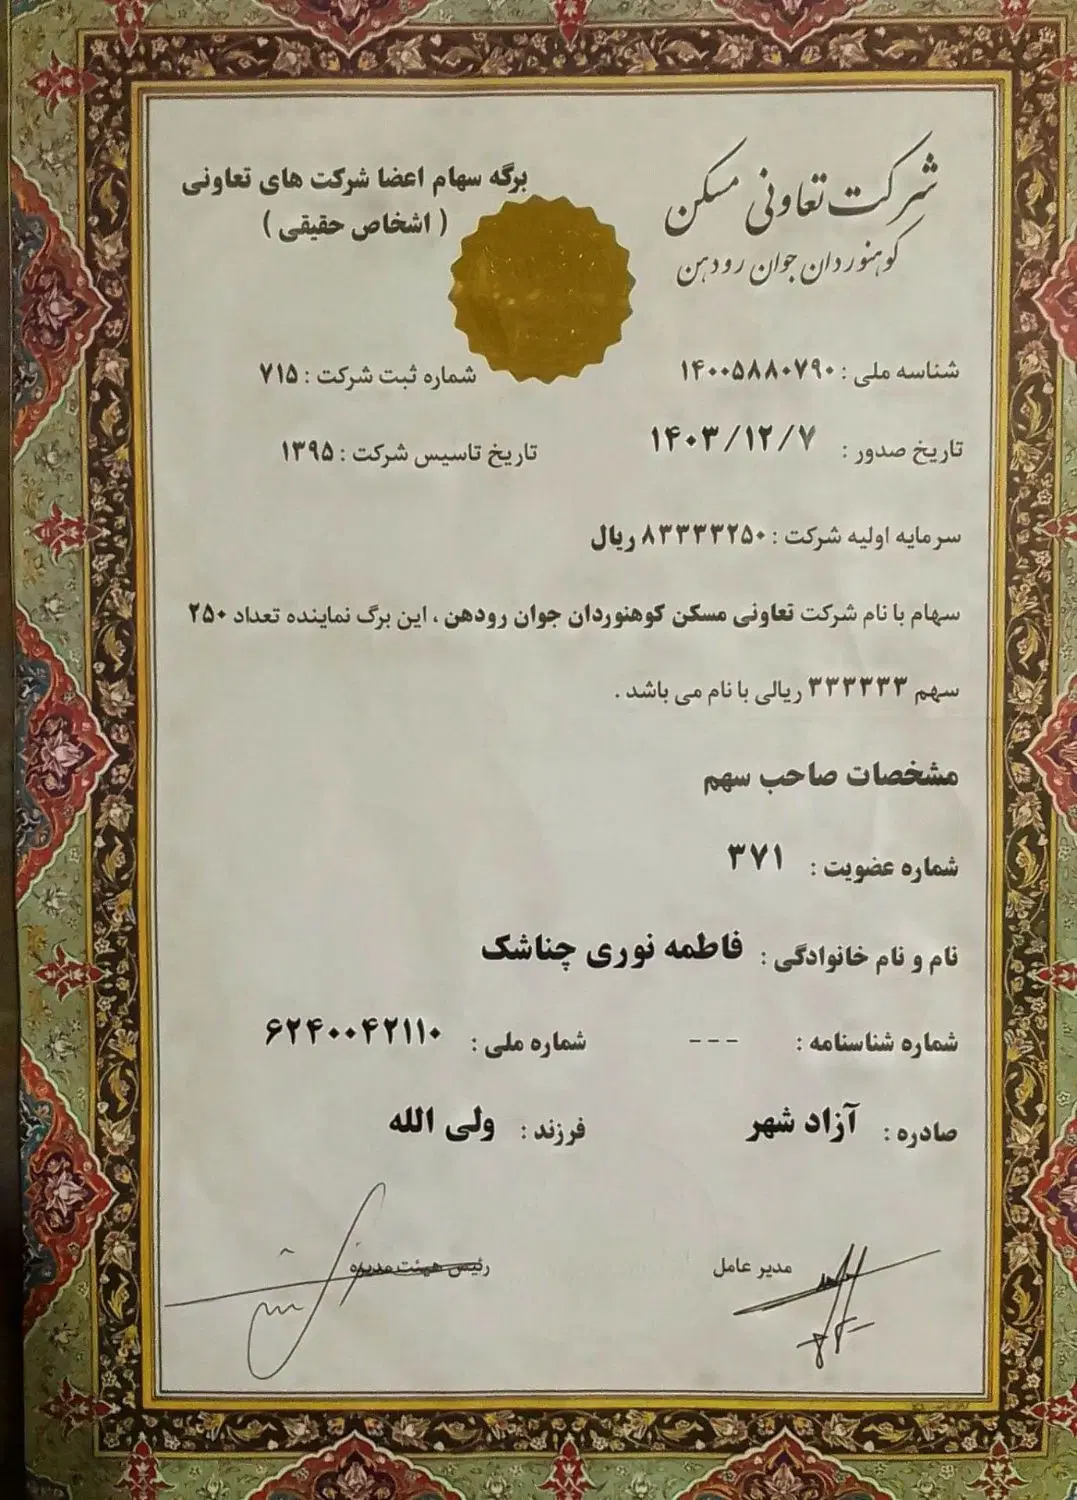 شرکت تعاونی مسکن
کوهنوردان جوان رودهن
برگه سهام اعضا شرکت های تعاونی
( اشخاص حقیقی )
شناسه ملی : ۱۴۰۰۵۸۸۰۷۹۰
شماره ثبت شرکت : ۷۱۵
تاریخ صدور : ۱۴۰۳/۱۲/۷
تاریخ تاسیس شرکت : ۱۳۹۵
سرمایه اولیه شرکت : ۸۳۳۳۳۲۵۰ ریال
سهام با نام شرکت تعاونی مسکن کوهنوردان جوان رودهن ، این برگ نماینده تعداد ۲۵۰
سهم ۳۳۳۳۳۳ ریالی با نام می باشد .
مشخصات صاحب سهم
شماره عضویت : ۳۷۱
نام و نام خانوادگی : فاطمه نوری چناشک
شماره شناسنامه : ---
شماره ملی : ۶۲۴۰۰۴۲۱۱۰
صادره : آزاد شهر
فرزند : ولی الله
مدیر عامل
رئیس هیئت مدیره